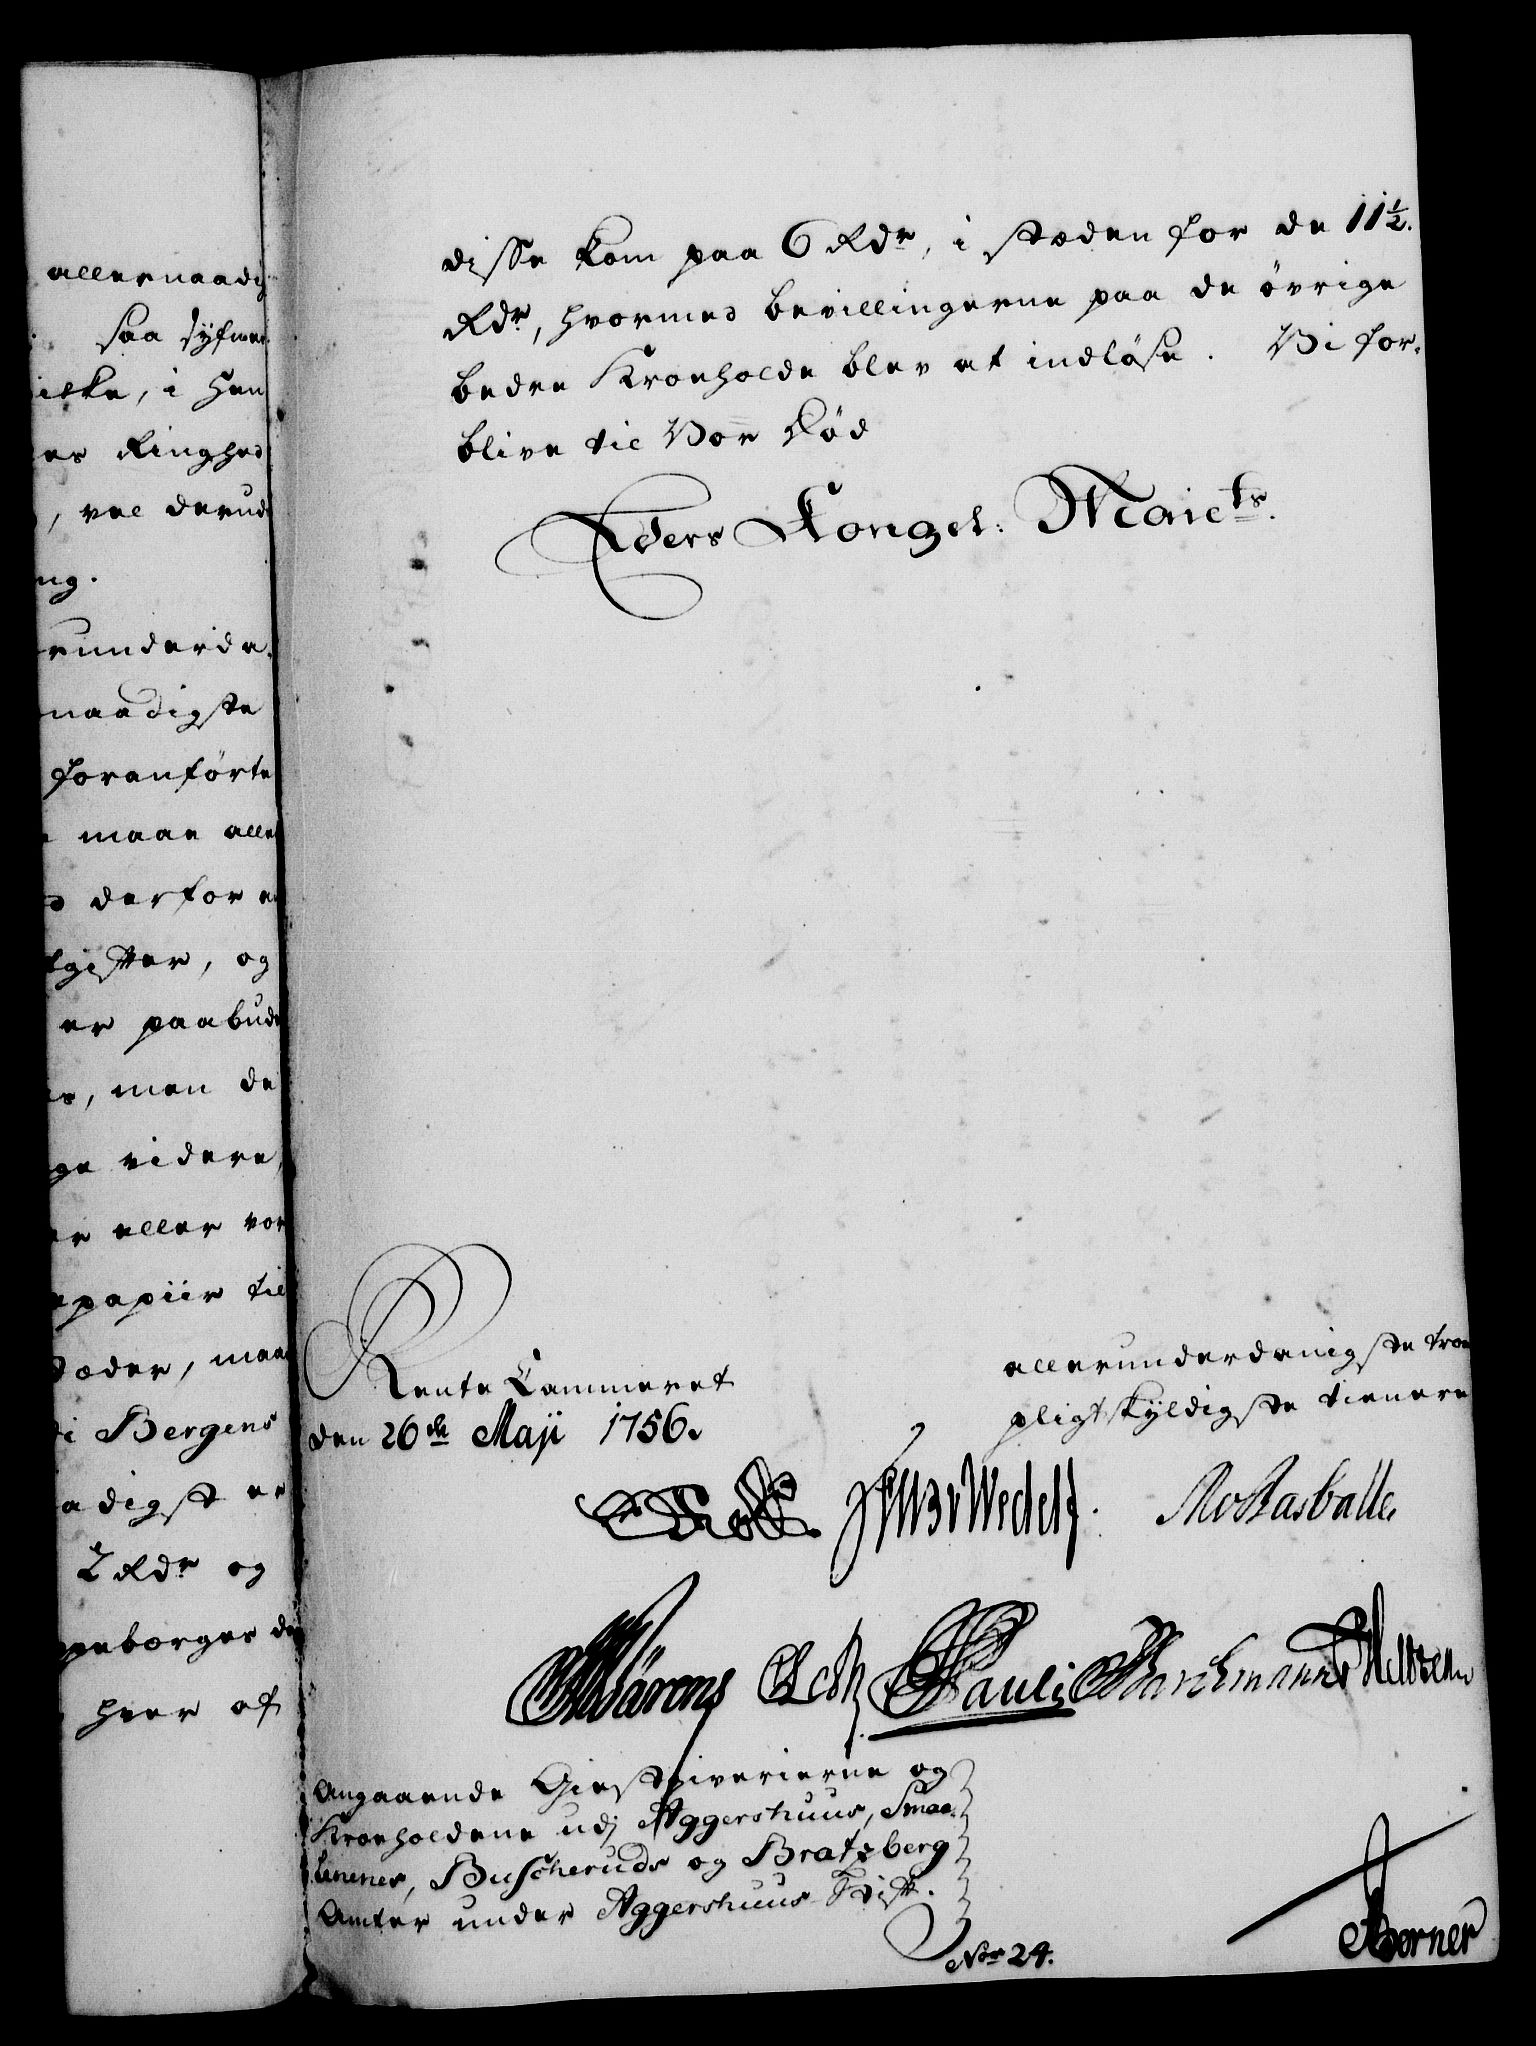 allernaadig
saa
ilke, i hen
es Ringhed
, vel derud
ng.
runderda-
naadigste
foranførte
maae aller
derfor
tgifter, og
er paabude
s, men de
ge videre,
er eller vor
epapiir til
Bergens
adigst er
2 Rdr og
hver af
disse kom paa 6 Rdr, i stæden for de 11½.
Rdr, hvormed bevillingerne paa de øvrige
bedre Kroeholde blev at indløse. Vi for-
blive til Vor Død
Eders Kongel: Maiets.
Rente Cammeret
den 26de Maji 1756.
allerunderdanigste troe
pligtskyldigste tienere
Wedel
Rasballe
Pauli
Angaaende Giestgiverierne og
Kroeholdene udj Aggershuus, Smaa-
lenenes, Buscheruds og Bratsberg
Amter under Aggershuus Stift.
Nor 24.
Berner